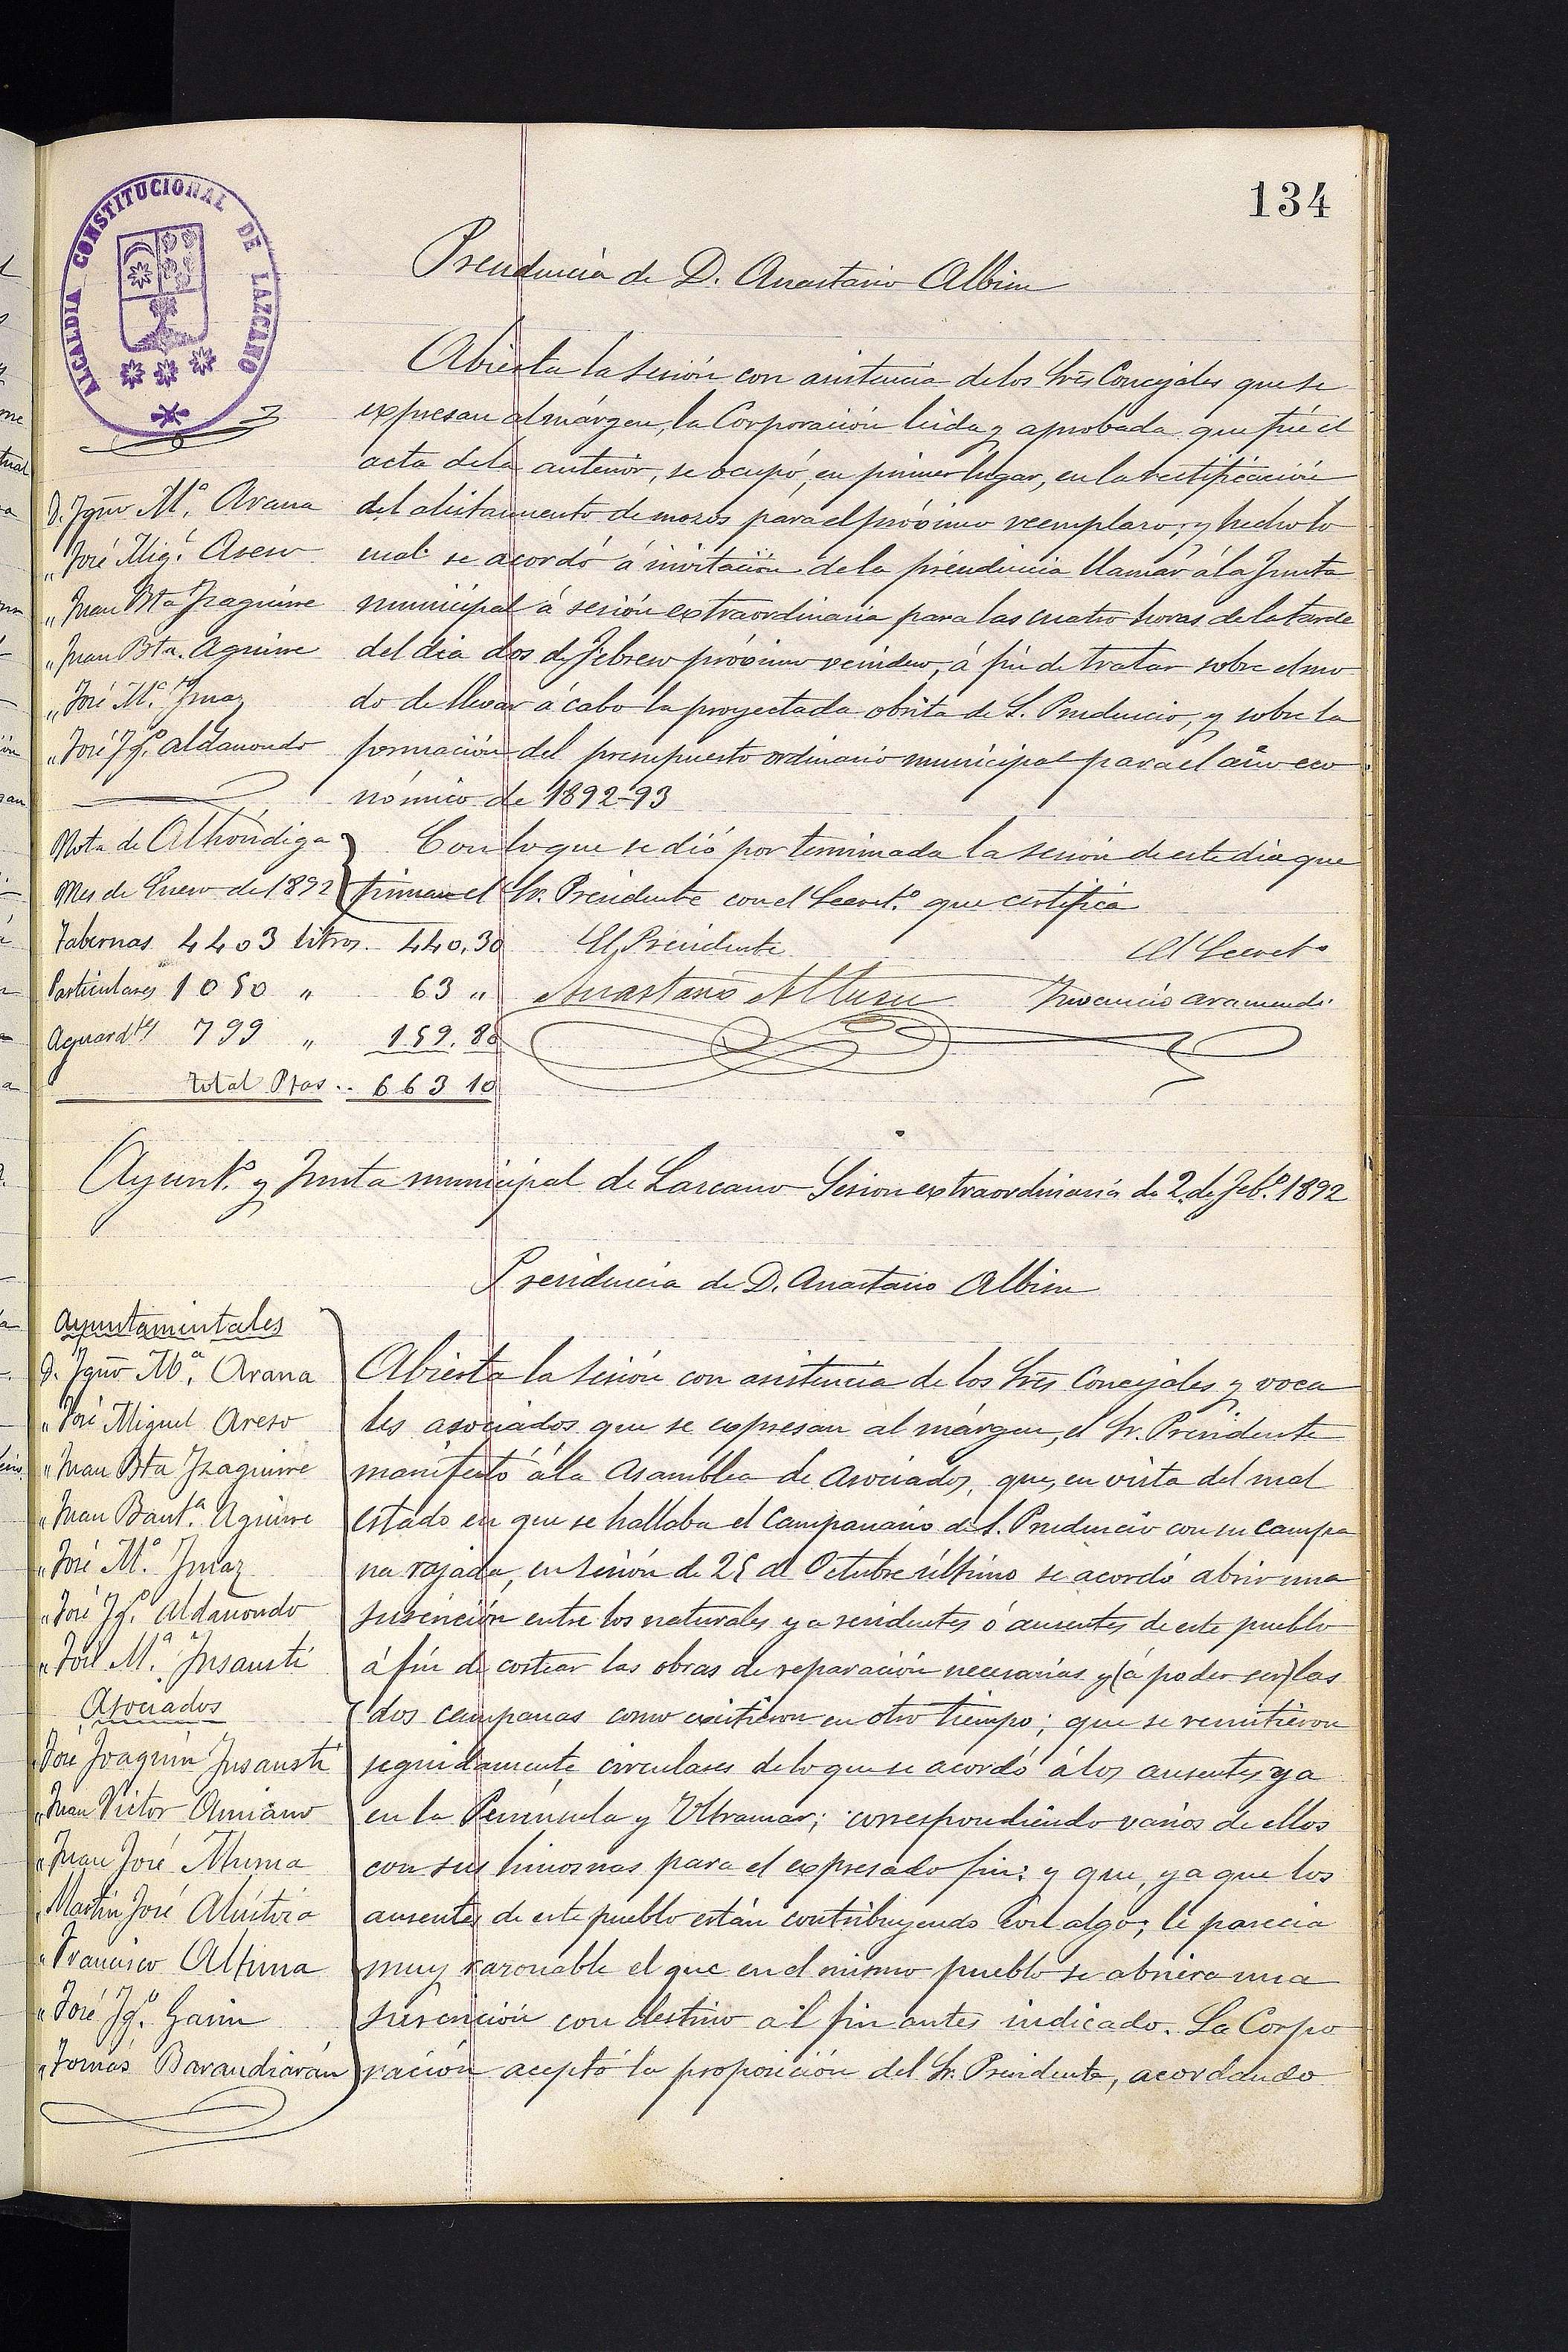 134
ALCALDIA CONSTITUCIONAL DE LAZCANO
Presidencia de D. Anastasio Albisu
D. Igno Mª. Arana
" José Mig.l Areso
" Juan Bta Izaguirre
" Juan Bta. Aguirre
" José Mª. Imaz
" José Ig.º Aldanondo
Abierta la sesión con asistencia de los Sres Concejales que se
expresan al márgen, la Corporación leida y aprobada que fué el
acta de la anterior, se ocupó, en primer lugar, en la rectificación
del alistamiento de mozos para el próximo reemplazo; y hecho lo
cual se acordó á invitación de la presidencia llamar á la Junta
municipal á sesión extraordinaria para las cuatro horas de la tarde
del dia dos de Febrero próximo venidero, á fin de tratar sobre el mo
do de llevar á cabo la proyectada obrita de S. Prudencio, y sobre la
formación del presupuesto ordinario municipal para el año eco
nómico de 1892-93
Con lo que se dió por terminada la sesión de este dia que
firman el Sr. Presidente con el Secret.º que certifica
El Presidente
El Secret.º
Anastasio Albisu
Inocencio Aramendi
Nota de Alhóndiga
Mes de Enero de 1892
Tabernas 4403 litros. 440,30
Particulares 1050 " 63 "
Aguard.tes 799 " 159.80
total Ptas .. 663 10
Ayunt.º y Junta municipal de Lazcano Sesion extraordinaria de 2 de Feb.º 1892
Presidencia de D. Anastasio Albisu
Ayuntamientales
D. Igno Mª. Arana
" José Miguel Areso
" Juan Bta Izaguirre
" Juan Baut.ª Aguirre
" José Mª. Imaz
" José Ig.º Aldanondo
" José Mª. Insausti
Asociados
José Joaquin Insausti
" Juan Victor Amiano
" Juan José Munia
" Martin José Aluistiza
" Francisco Altuna
" José Ig.º Garin
" Tomás Barandiarán
Abierta la sesión con asistencia de los Sres Concejales y voca
les asociados que se expresan al márgen, el Sr. Presidente
manifestó á la Asamblea de Asociados, que, en vista del mal
estado en que se hallaba el Campanario de S. Prudencio con su campa
na rajada, en sesión de 25 de Octubre último se acordó abrir una
suscrición entre los naturales ya residentes ó ausentes de este pueblo
á fin de costear las obras de reparación necesarias y (á poder ser) las
dos campanas como existieron en otro tiempo; que se remitieron
seguidamente circulares de lo que se acordó á los ausentes ya
en la Península y Ultramar; correspondiendo varios de ellos
con sus limosnas para el expresado fin: y que, ya que los
ausentes de este pueblo están contribuyendo con algo; le parecia
muy razonable el que en el mismo pueblo se abriera una
suscrición con destino al fin antes indicado. La Corpo
ración aceptó la proposición del Sr. Presidente, acordando